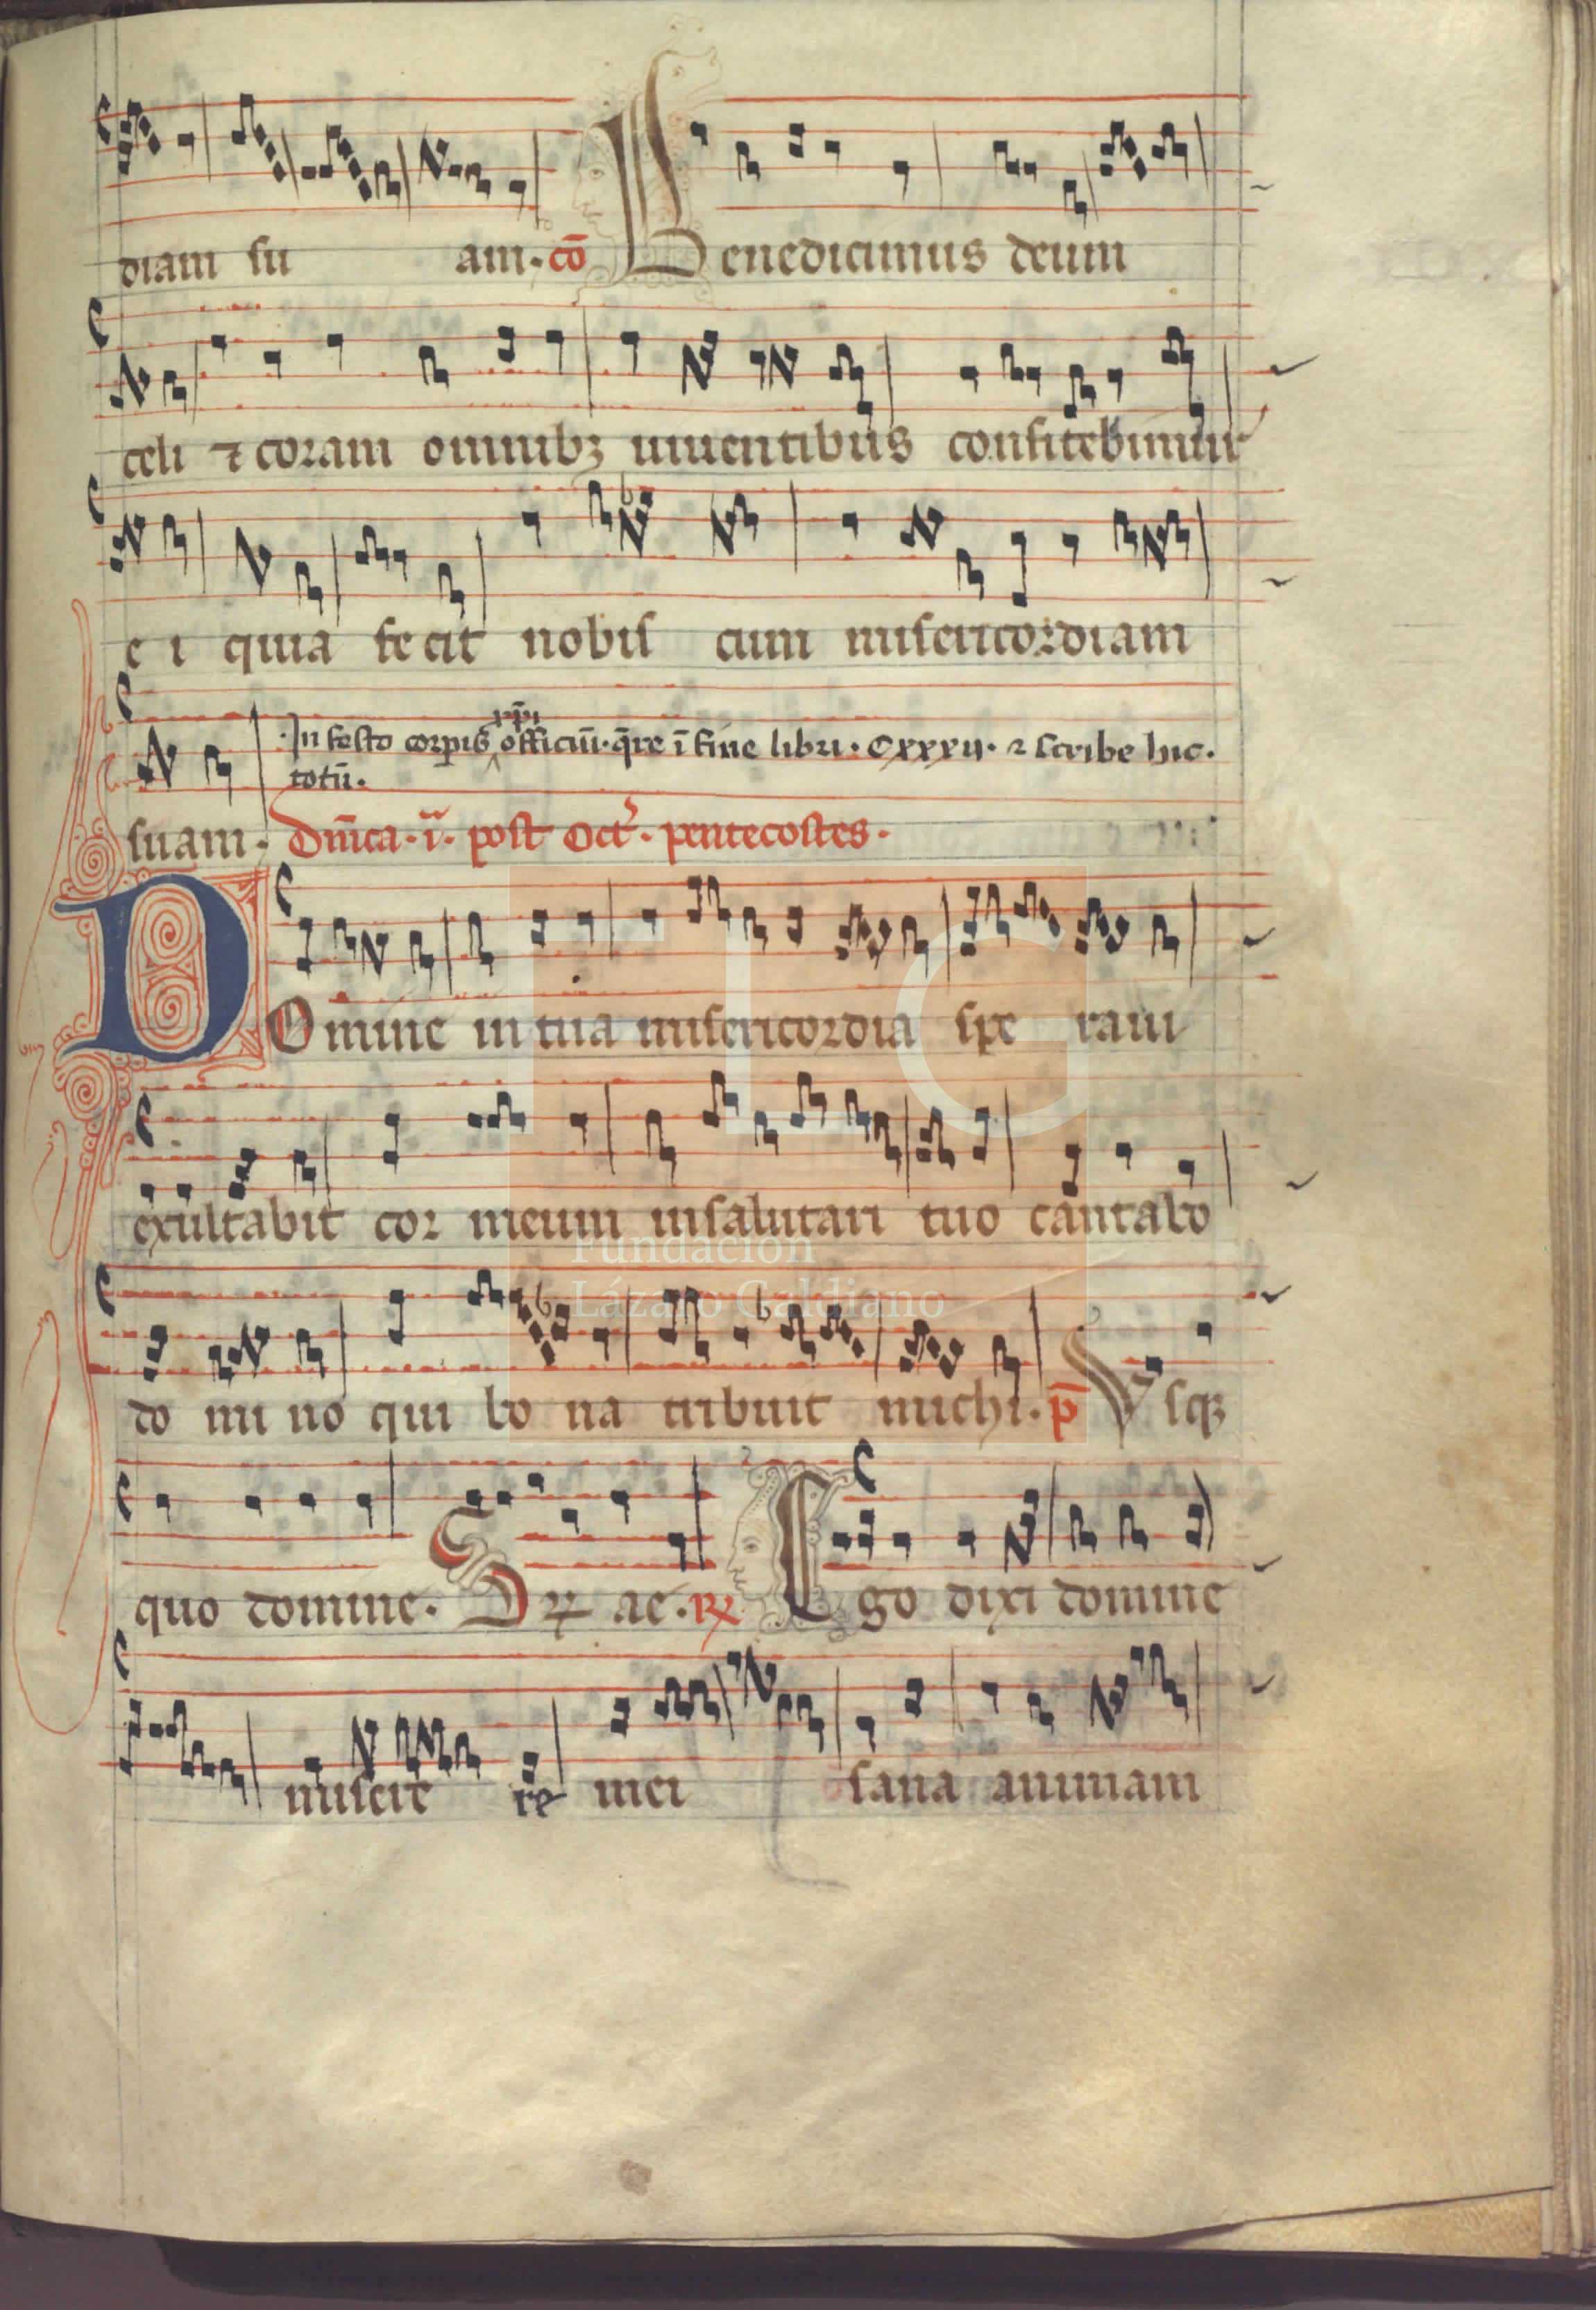 diam su am. cō Benedicimus deum
celi ⁊ coram omnibꝫ uiuentibus confitebimur
e i quia fecit nobis cum misericordiam
xp̄i
In festo corpis officiū. q̄re ī fine libri. Cxxxij. ⁊ scribe hic.
totū.
suam. Dn̄ica. i. post Oct̄. pentecostes.
DOmine in tua misericordia spe raui
exultabit cor meum in salutari tuo cantabo
do mi no qui bo na tribuit michi. p̄ Vsqꝫ
quo domine. ae. Ego dixi domine
misere re mei sana animam
Fundación
Lázaro Galdiano